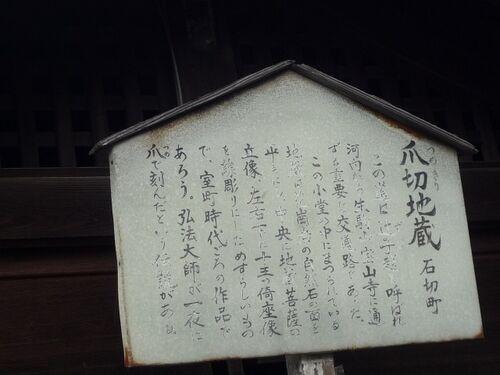 つめきり
爪切地蔵 石切町
この道は 辻子越 呼ばれ
河内から生駒の宝山寺に通
ずる重要な交通路であった。
この小堂の中にまつられている
地蔵は 花崗岩の自然石の面を
平らにし 中央に地蔵菩薩の
立像、左右下に十王の倚座像
を線彫りにしためずらしいもの
で、室町時代ごろの作品で
あろう。弘法大師が一夜に
爪で刻んだという伝説がある。